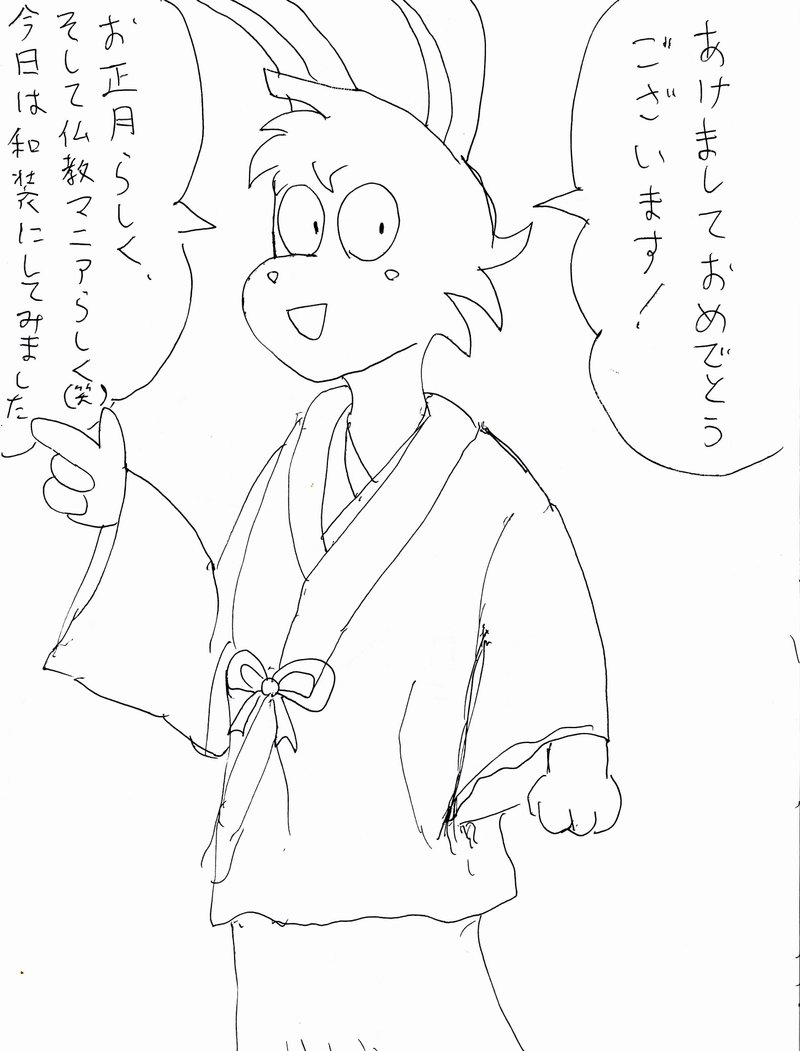 あけましておめでとう
ございます!
お正月らしく、
そして仏教マニアらしく(笑)
今日は和装にしてみました